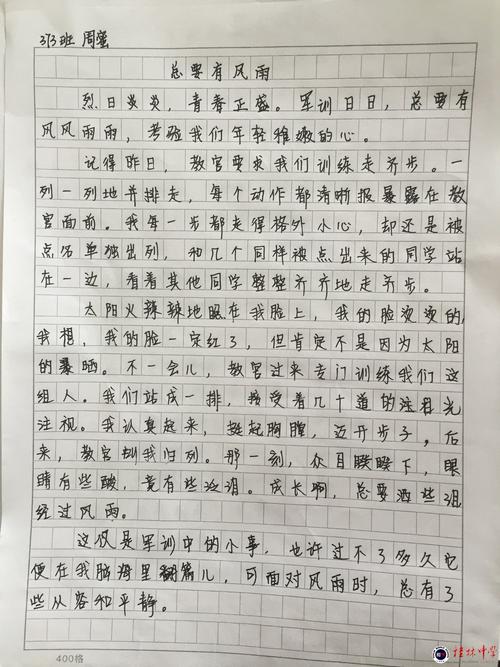 373班 周莹
总要有风雨
烈日炎炎，青春正盛。军训日日，总要有
风风雨雨，考验我们年轻稚嫩的心。
记得昨日，教官要求我们训练走齐步。一
列一列地并排走，每个动作都清晰报暴露在教
官面前。我每一步都走得格外小心，却还是被
点名单独出列，和几个同样被点出来的同学站
在一边，看着其他同学整整齐齐地走齐步。
太阳火辣辣地照在我脸上，我的脸烫烫的，
我想，我的脸一定红了，但肯定不是因为太阳
的暴晒。不一会儿，教官过来专门训练我们这
组人。我们站成一排，接受着几十道的注目光
注视。我认真起来，挺起胸膛，迈开步子，后
来，教官叫我归列。那一刻，众目睽睽下，眼
睛有些酸，竟有些泛泪。成长啊，总要洒些泪
经过风雨。
这仅是军训中的小事，也许过不了多久它
便在我脑海里翻篇儿，可面对风雨时，总有了
些从容和平静。
400格
桂林中学